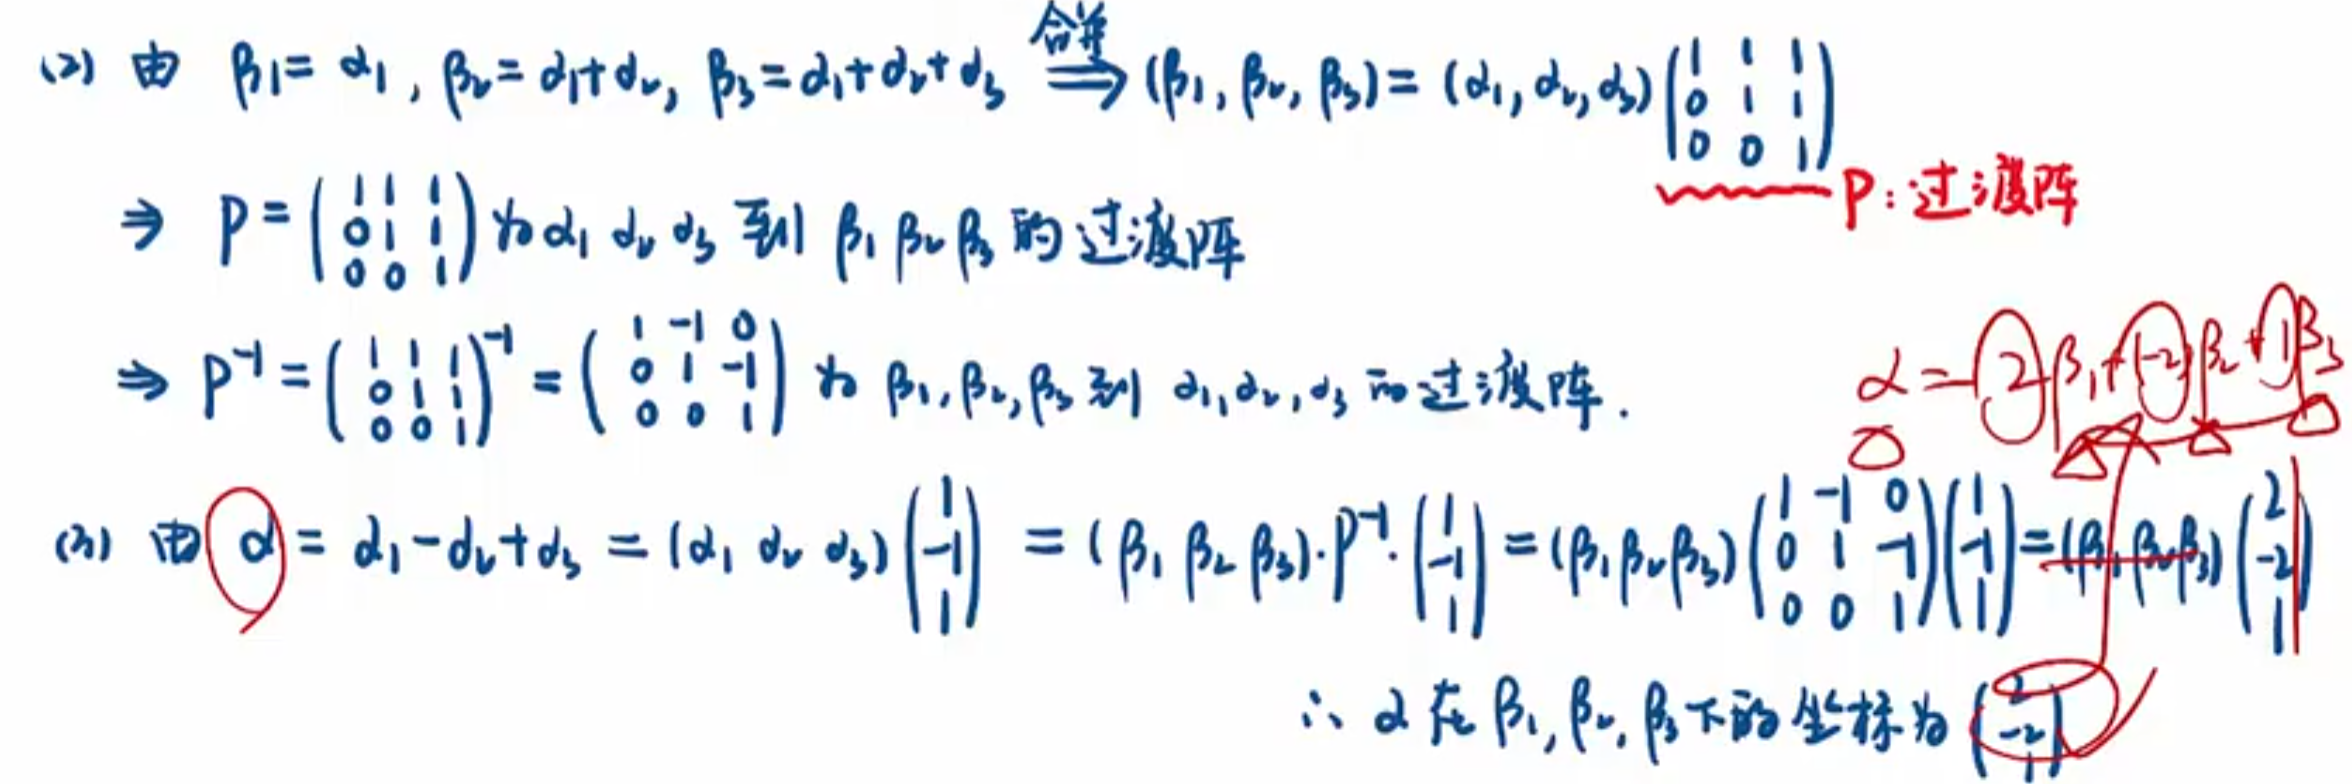 (2) 由 β₁=α₁, β₂=α₁+α₂, β₃=α₁+α₂+α₃ 合并⟹ (β₁, β₂, β₃)=(α₁, α₂, α₃)(1 1 1; 0 1 1; 0 0 1)
P:过渡阵
⇒ P=(1 1 1; 0 1 1; 0 0 1)为α₁ α₂ α₃ 到 β₁ β₂ β₃ 的过渡阵
⇒ P⁻¹=(1 1 1; 0 1 1; 0 0 1)⁻¹=(1 -1 0; 0 1 -1; 0 0 1) 为 β₁, β₂, β₃ 到 α₁, α₂, α₃ 的过渡阵.
α=2β₁+(-2)β₂+1β₃
(3) 由 α=α₁-α₂+α₃=(α₁ α₂ α₃)(1; -1; 1)=(β₁ β₂ β₃)·P⁻¹·(1; -1; 1)=(β₁ β₂ β₃)(1 -1 0; 0 1 -1; 0 0 1)(1; -1; 1)=(β₁ β₂ β₃)(2; -2; 1)
∴ α 在 β₁, β₂, β₃ 下的坐标为(2; -2; 1)